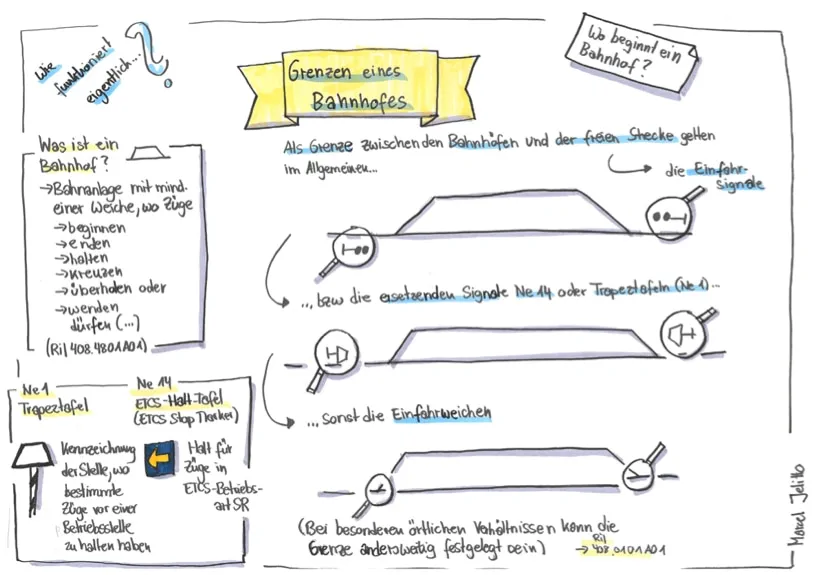 Wie
funktioniert
eigentlich...
?
Grenzen eines
Bahnhofes
Wo beginnt ein
Bahnhof?
Was ist ein
Bahnhof?
→Bahnanlage mit mind.
einer Weiche, wo Züge
→beginnen
→enden
→halten
→kreuzen
→überholen oder
→wenden
dürfen (...)
(Ril 408.4801A01)
Als Grenze zwischen den Bahnhöfen und der freien Strecke gelten
im Allgemeinen...
die Einfahr-
signale
..., bzw die ersetzenden Signale Ne 14 oder Trapeztafeln (Ne 1)...
... sonst die Einfahrweichen
(Bei besonderen örtlichen Verhältnissen kann die
Grenze anderweitig festgelegt sein)
Ril
→ 408.0101A01
Ne 1
Trapeztafel
Kennzeichnung
der Stelle, wo
bestimmte
Züge vor einer
Betriebsstelle
zu halten haben
Ne 14
ETCS-Halt-Tafel
(ETCS Stop Marker)
Halt für
Züge in
ETCS-Betriebs-
art SR
Marcel Jelitto